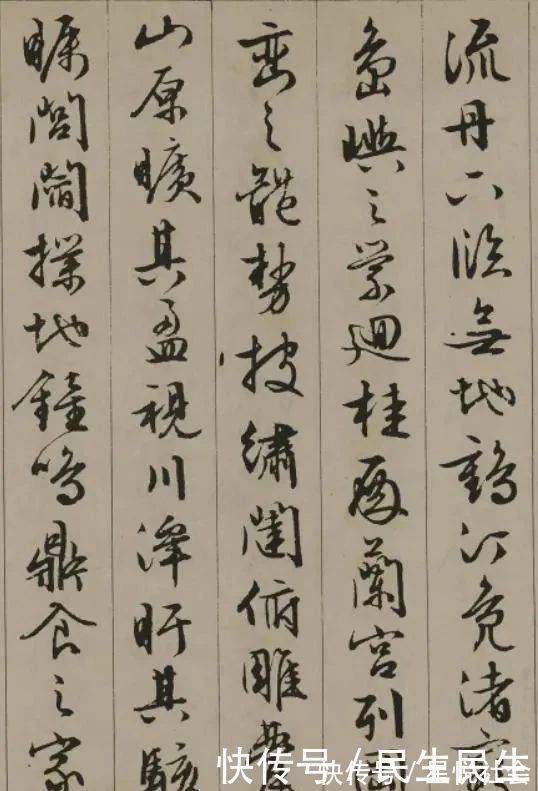 流丹下臨無地鶴汀凫渚
島嶼之縈迴桂殿蘭宮列
巒之體勢披繡闥俯雕
山原曠其盈視川澤盱其駭
矚閭閻撲地鐘鳴鼎食之家
快传号 / 民生民生
快传号 /